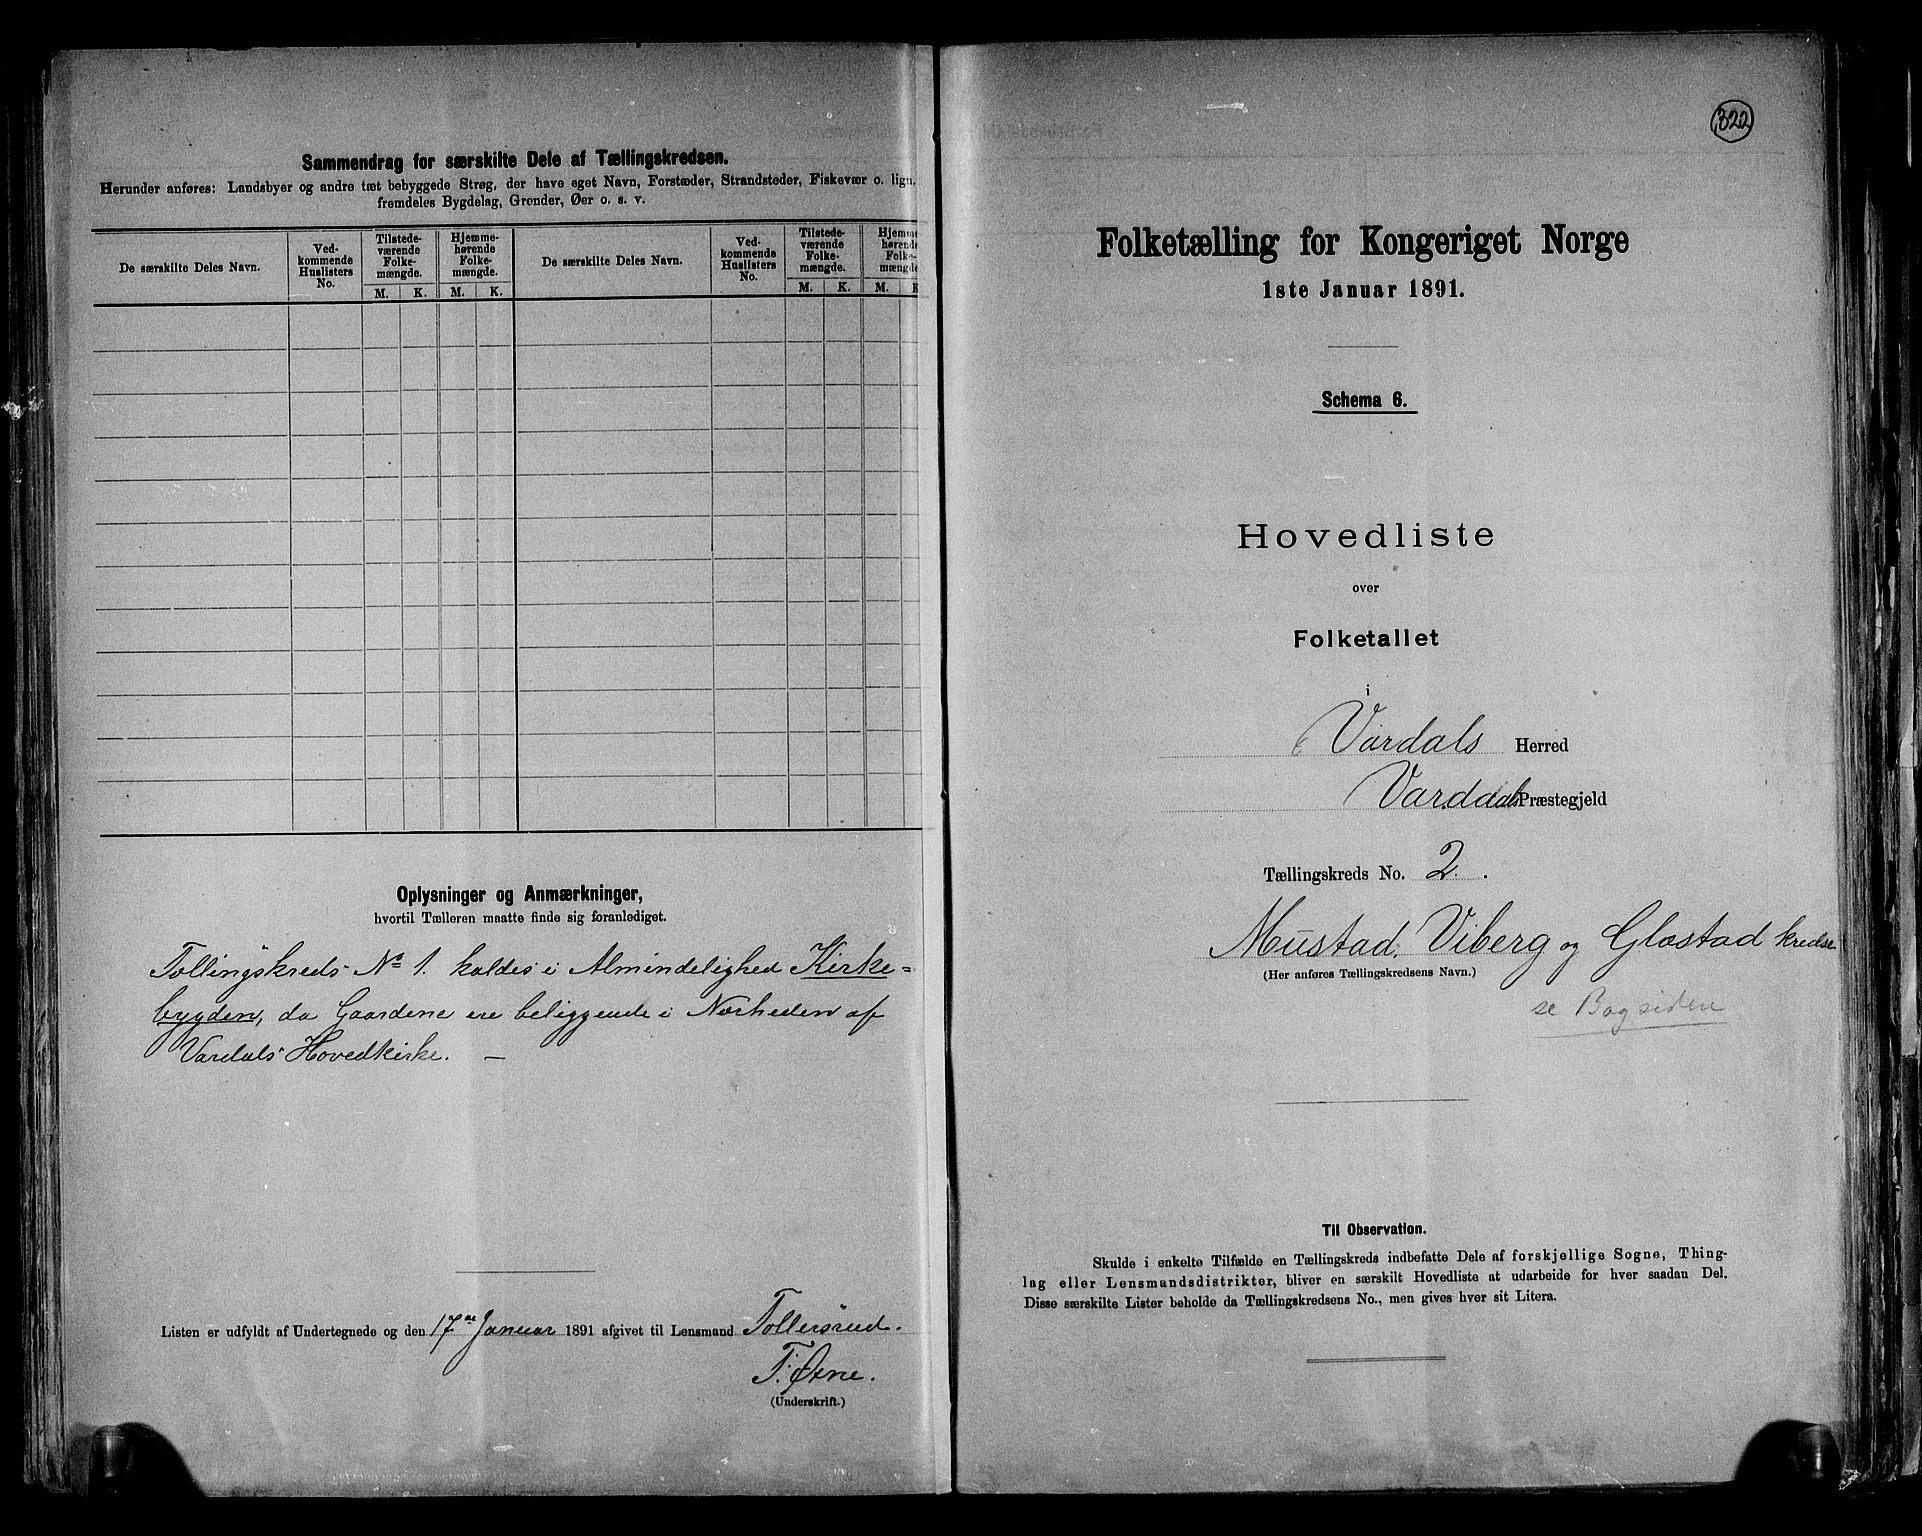 Sammendrag for særskilte Dele af Tællingskredsen.
Herunder anføres: Landsbyer og andre tæt bebyggede Strøg, der have eget Navn, Forstæder, Strandsteder, Fiskevær o. lign.
fremdeles Bygdelag, Grender, Øer o. s. v.
De særskilte Deles Navn.
Ved-
kommende
Huslisters
No.
Tilstede-
værende
Folke-
mængde.
Hjemme-
hørende
Folke-
mængde.
De særskilte Deles Navn.
Ved-
kommende
Huslisters
No.
Tilstede-
værende
Folke-
mængde.
Hjemme-
hørende
Folke-
mængde
M. K. M. K. M. K. M. K
Oplysninger og Anmærkninger,
hvortil Tælleren maatte finde sig foranlediget.
Tællingskreds No 1. kaldes i Almindelighed Kirke=
bygden, da Gaardene ere beliggende i Nærheden af
Vardals Hovedkirke. —
Listen er udfyldt af Undertegnede og den 17de Januar 1891 afgivet til Lensmand Tollersrud.
T. Øvne.
(Underskrift.)
322
Folketælling for Kongeriget Norge
1ste Januar 1891.
Schema 6.
Hovedliste
over
Folketallet
i
Vardals Herred
Vardals Præstegjeld
Tællingskreds No. 2.
Mustad, Viberg og Glæstad kredse
(Her anføres Tællingskredsens Navn.)
se Bagsiden
Til Observation.
Skulde i enkelte Tilfælde en Tællingskreds indbefatte Dele af forskjellige Sogne, Thing-
lag eller Lensmandsdistrikter, bliver en særskilt Hovedliste at udarbeide for hver saadan Del.
Disse særskilte Lister beholde da Tællingskredsens No., men gives hver sit Litera.